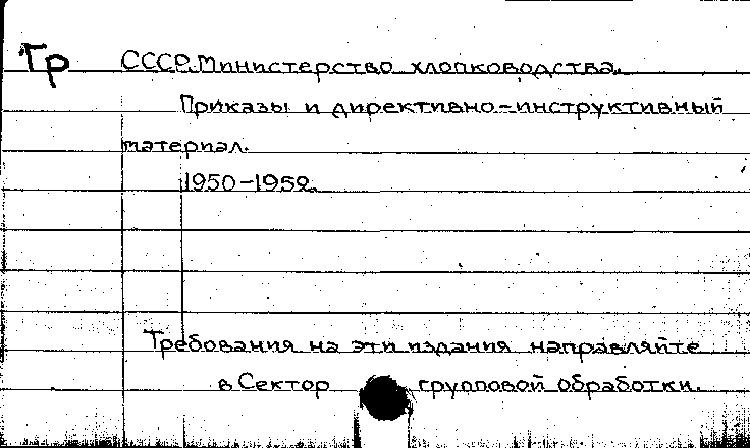 Тр СССР. Министерство хлопководства.
Приказы и директивно-инструктивный
материал.
1950-1952.
Требования на эти издания направляйте
в Сектор групповой обработки.